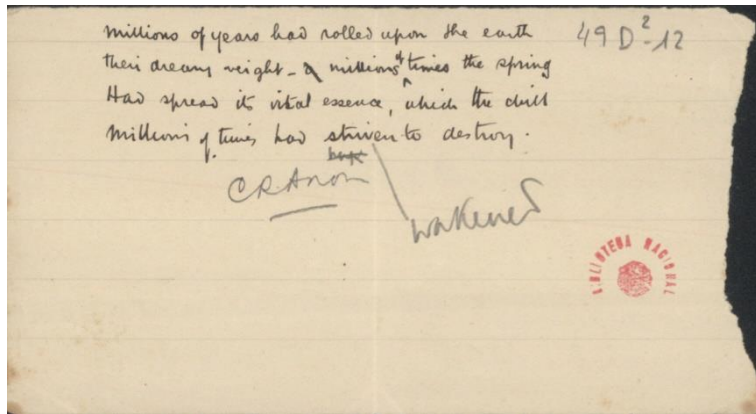 Millions of years had rolled upon the earth
49D²-12
their dreamy weight - a millions of times the spring
Had spread its vital essence, which the chill
Millions of times had striven to destroy.
C R Anon
wakened
BIBLIOTECA NACIONAL